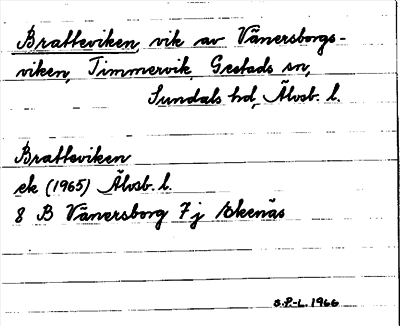 Bratteviken, vik av Vänersborgs-
viken, Timmervik, Gestads sn,
Sundals hd, Älvsb. l.
Bratteviken
ek (1965) Älvsb. l.
8 B Vänersborg 7j Ekenäs
S.P.-L. 1966